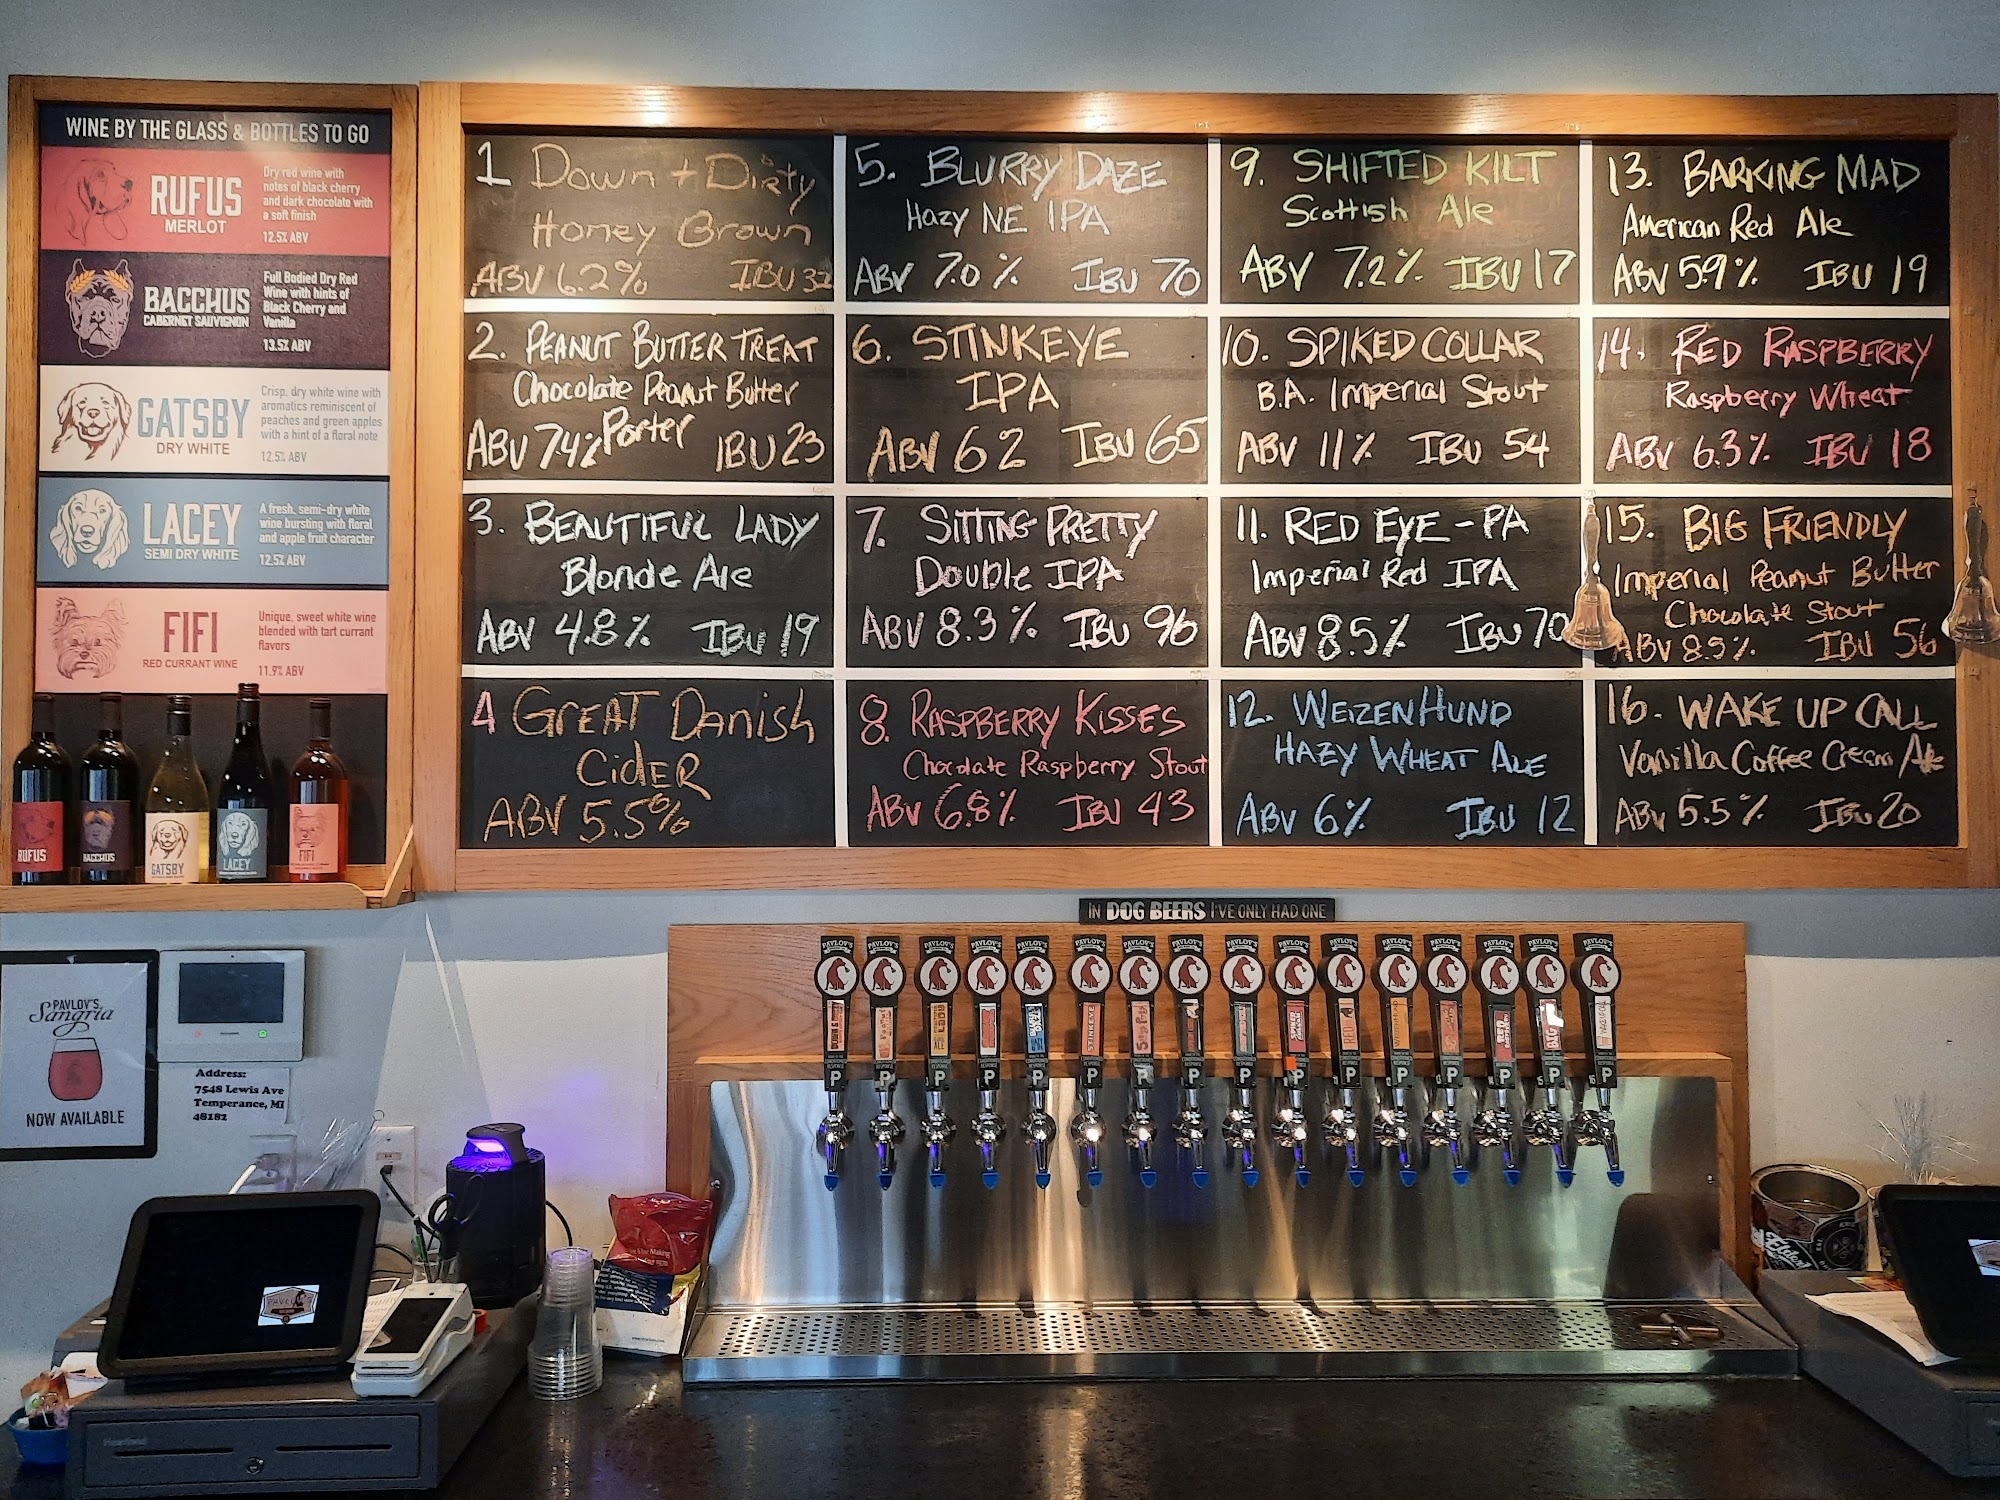 WINE BY THE GLASS & BOTTLES TO GO
RUFUS
MERLOT
Dry red wine with
notes of black cherry
and dark chocolate with
a soft finish
12.5% ABV
BACCHUS
CABERNET SAUVIGNON
Full Bodied Dry Red
Wine with hints of
Black Cherry and
Vanilla
13.5% ABV
GATSBY
DRY WHITE
Crisp, dry white wine with
aromatics reminiscent of
peaches and green apples
with a hint of a floral note
12.5% ABV
LACEY
SEMI DRY WHITE
A fresh, semi-dry white
wine bursting with floral
and apple fruit character
12.5% ABV
FIFI
RED CURRANT WINE
Unique, sweet white wine
blended with tart currant
flavors
11.9% ABV
RUFUS
BACCHUS
GATSBY
LACEY
FIFI
1 Down + Dirty
Honey Brown
ABV 6.2% IBU 32
2. PEANUT BUTTER TREAT
Chocolate Peanut Butter
Porter
ABV 7.4% IBU 23
3. BEAUTIFUL LADY
Blonde Ale
ABV 4.8% IBU 19
4 GREAT Danish
CidER
ABV 5.5%
5. BLURRY DAZE
Hazy NE IPA
ABV 7.0% IBU 70
6. STINKEYE
IPA
ABV 6.2 IBU 65
7. SITTING PRETTY
Double IPA
ABV 8.3% IBU 96
8. RASPBERRY KISSES
Chocolate Raspberry Stout
ABV 6.8% IBU 43
9. SHIFTED KILT
Scottish Ale
ABV 7.2% IBU 17
10. SPIKED COLLAR
B.A. Imperial Stout
ABV 11% IBU 54
11. RED EYE-PA
Imperial Red IPA
ABV 8.5% IBU 70
12. WEIZENHUND
HAZY WHEAT ALE
ABV 6% IBU 12
13. BARKING MAD
American Red Ale
ABV 5.9% IBU 19
14. RED RASPBERRY
Raspberry Wheat
ABV 6.3% IBU 18
15. BIG FRIENDLY
Imperial Peanut Butter
Chocolate Stout
ABV 8.5% IBU 56
16. WAKE UP CALL
Vanilla Coffee Cream Ale
ABV 5.5% IBU 20
IN DOG BEERS I'VE ONLY HAD ONE
PAVLOV'S
Sangria
NOW AVAILABLE
Address:
7548 Lewis Ave
Temperance, MI
48182
PAVLOV'S
STINKEYE
P